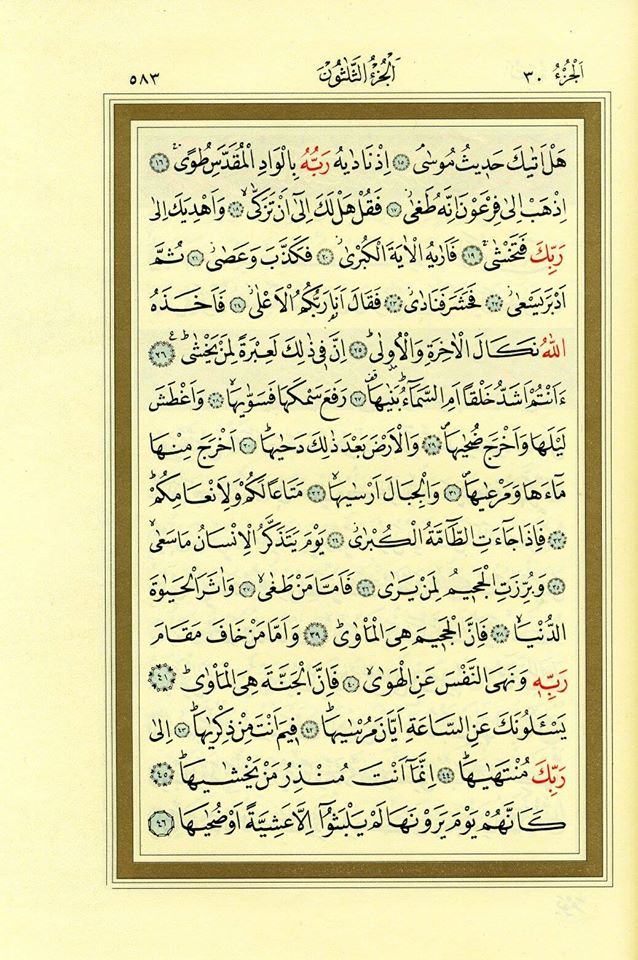 اَلْجُزْءُ ٣٠ اَلْجُزْءُ الثَّلٰثُونَ ٥٨٣
هَلْ اَتٰيكَ حَد۪يثُ مُوسٰىۢ ﴿١٥﴾ اِذْ نَادٰيهُ رَبُّهُ بِالْوَادِ الْمُقَدَّسِ طُوًىۚ ﴿١٦﴾
اِذْهَبْ اِلٰى فِرْعَوْنَ اِنَّهُ طَغٰىۘ ﴿١٧﴾ فَقُلْ هَلْ لَكَ اِلٰٓى اَنْ تَزَكّٰىۙ ﴿١٨﴾ وَاَهْدِيَكَ اِلٰى
رَبِّكَ فَتَخْشٰىۚ ﴿١٩﴾ فَاَرٰيهُ الْاٰيَةَ الْكُبْرٰىۘ ﴿٢٠﴾ فَكَذَّبَ وَعَصٰىۘ ﴿٢١﴾ ثُمَّ
اَدْبَرَ يَسْعٰىۘ ﴿٢٢﴾ فَحَشَرَ فَنَادٰىۘ ﴿٢٣﴾ فَقَالَ اَنَا۬ رَبُّكُمُ الْاَعْلٰىۘ ﴿٢٤﴾ فَاَخَذَهُ
اللّٰهُ نَكَالَ الْاٰخِرَةِ وَالْاُو۫لٰىۜ ﴿٢٥﴾ اِنَّ ف۪ي ذٰلِكَ لَعِبْرَةً لِمَنْ يَخْشٰىۜ ﴿٢٦﴾
ءَاَنْتُمْ اَشَدُّ خَلْقًا اَمِ السَّمَٓاءُۜ بَنٰيهَا۠ ﴿٢٧﴾ رَفَعَ سَمْكَهَا فَسَوّٰيهَاۙ ﴿٢٨﴾ وَاَغْطَشَ
لَيْلَهَا وَاَخْرَجَ ضُحٰيهَاۖ ﴿٢٩﴾ وَالْاَرْضَ بَعْدَ ذٰلِكَ دَحٰيهَاۜ ﴿٣٠﴾ اَخْرَجَ مِنْهَا
مَٓاءَهَا وَمَرْعٰيهَاۖ ﴿٣١﴾ وَالْجِبَالَ اَرْسٰيهَاۙ ﴿٣٢﴾ مَتَاعًا لَكُمْ وَلِاَنْعَامِكُمْۜ
﴿٣٣﴾ فَاِذَا جَٓاءَتِ الطَّٓامَّةُ الْكُبْرٰىۘ ﴿٣٤﴾ يَوْمَ يَتَذَكَّرُ الْاِنْسَانُ مَا سَعٰىۙ
﴿٣٥﴾ وَبُرِّزَتِ الْجَح۪يمُ لِمَنْ يَرٰى ﴿٣٦﴾ فَاَمَّا مَنْ طَغٰىۙ ﴿٣٧﴾ وَاٰثَرَ الْحَيٰوةَ
الدُّنْيَاۙ ﴿٣٨﴾ فَاِنَّ الْجَح۪يمَ هِيَ الْمَأْوٰىۜ ﴿٣٩﴾ وَاَمَّا مَنْ خَافَ مَقَامَ
رَبِّه۪ وَنَهَى النَّفْسَ عَنِ الْهَوٰىۙ ﴿٤٠﴾ فَاِنَّ الْجَنَّةَ هِيَ الْمَأْوٰىۜ ﴿٤١﴾
يَسْـَٔلُونَكَ عَنِ السَّاعَةِ اَيَّانَ مُرْسٰيهَاۜ ﴿٤٢﴾ ف۪يمَ اَنْتَ مِنْ ذِكْرٰيهَاۜ ﴿٤٣﴾ اِلٰى
رَبِّكَ مُنْتَهٰيهَاۜ ﴿٤٤﴾ اِنَّمَٓا اَنْتَ مُنْذِرُ مَنْ يَخْشٰيهَاۜ ﴿٤٥﴾
كَاَنَّهُمْ يَوْمَ يَرَوْنَهَا لَمْ يَلْبَثُٓوا اِلَّا عَشِيَّةً اَوْ ضُحٰيهَا ﴿٤٦﴾